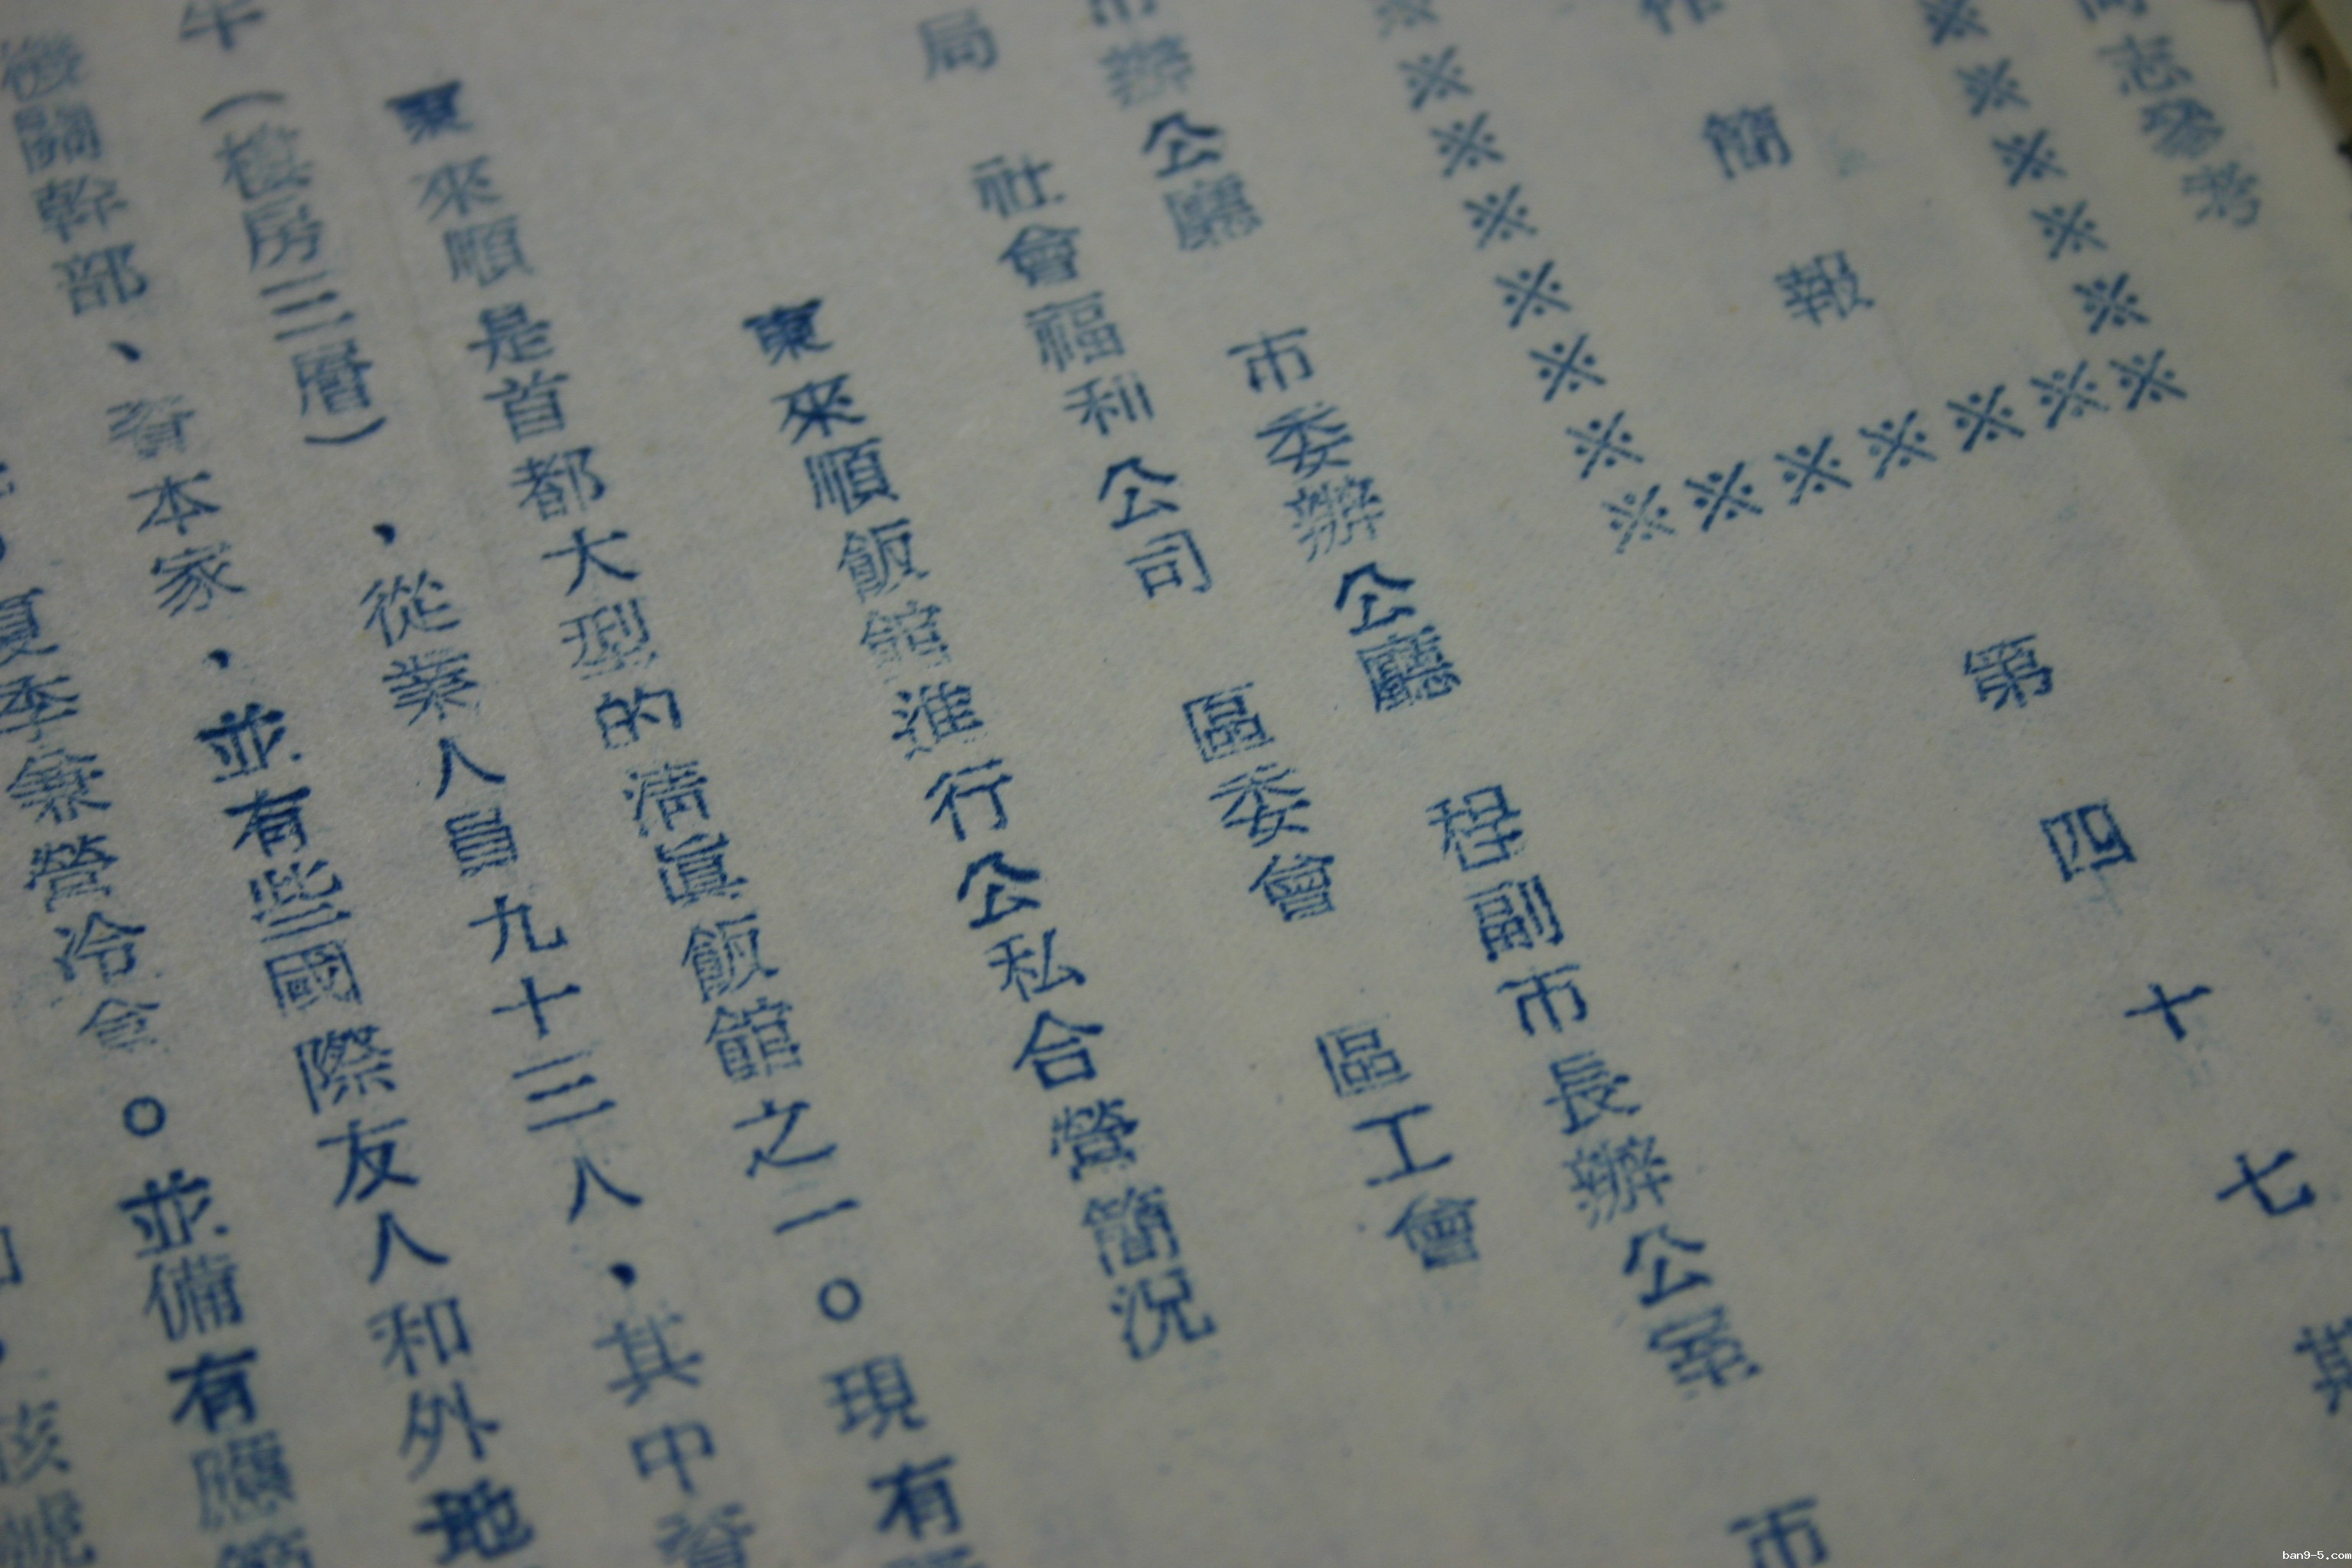 同志參考
※※※※※※
作簡報
※※※※※※※※
※※※※※※※
第四十七期
程副市長辦公室 市
市辦公廳 市委辦公廳
區工會
局 社會福利公司 區委會
東來順飯館進行公私合營簡況
東來順是首都大型的清真飯館之一。現有
（樓房三層）、從業人員九十三人、其中資
機關幹部、資本家、並有些國際友人和外地
夏季兼營冷食。並備有應節
核
ban9-5.com